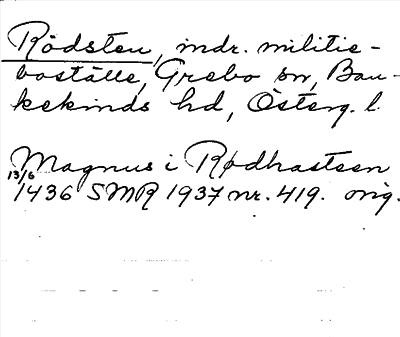 Rödsten, indr. militie-
boställe, Grebo sn, Ban-
kekinds hd, Österg. l.
Magnus i Rødhasteen
13/6 1436 SMR 1937 nr. 419. orig.